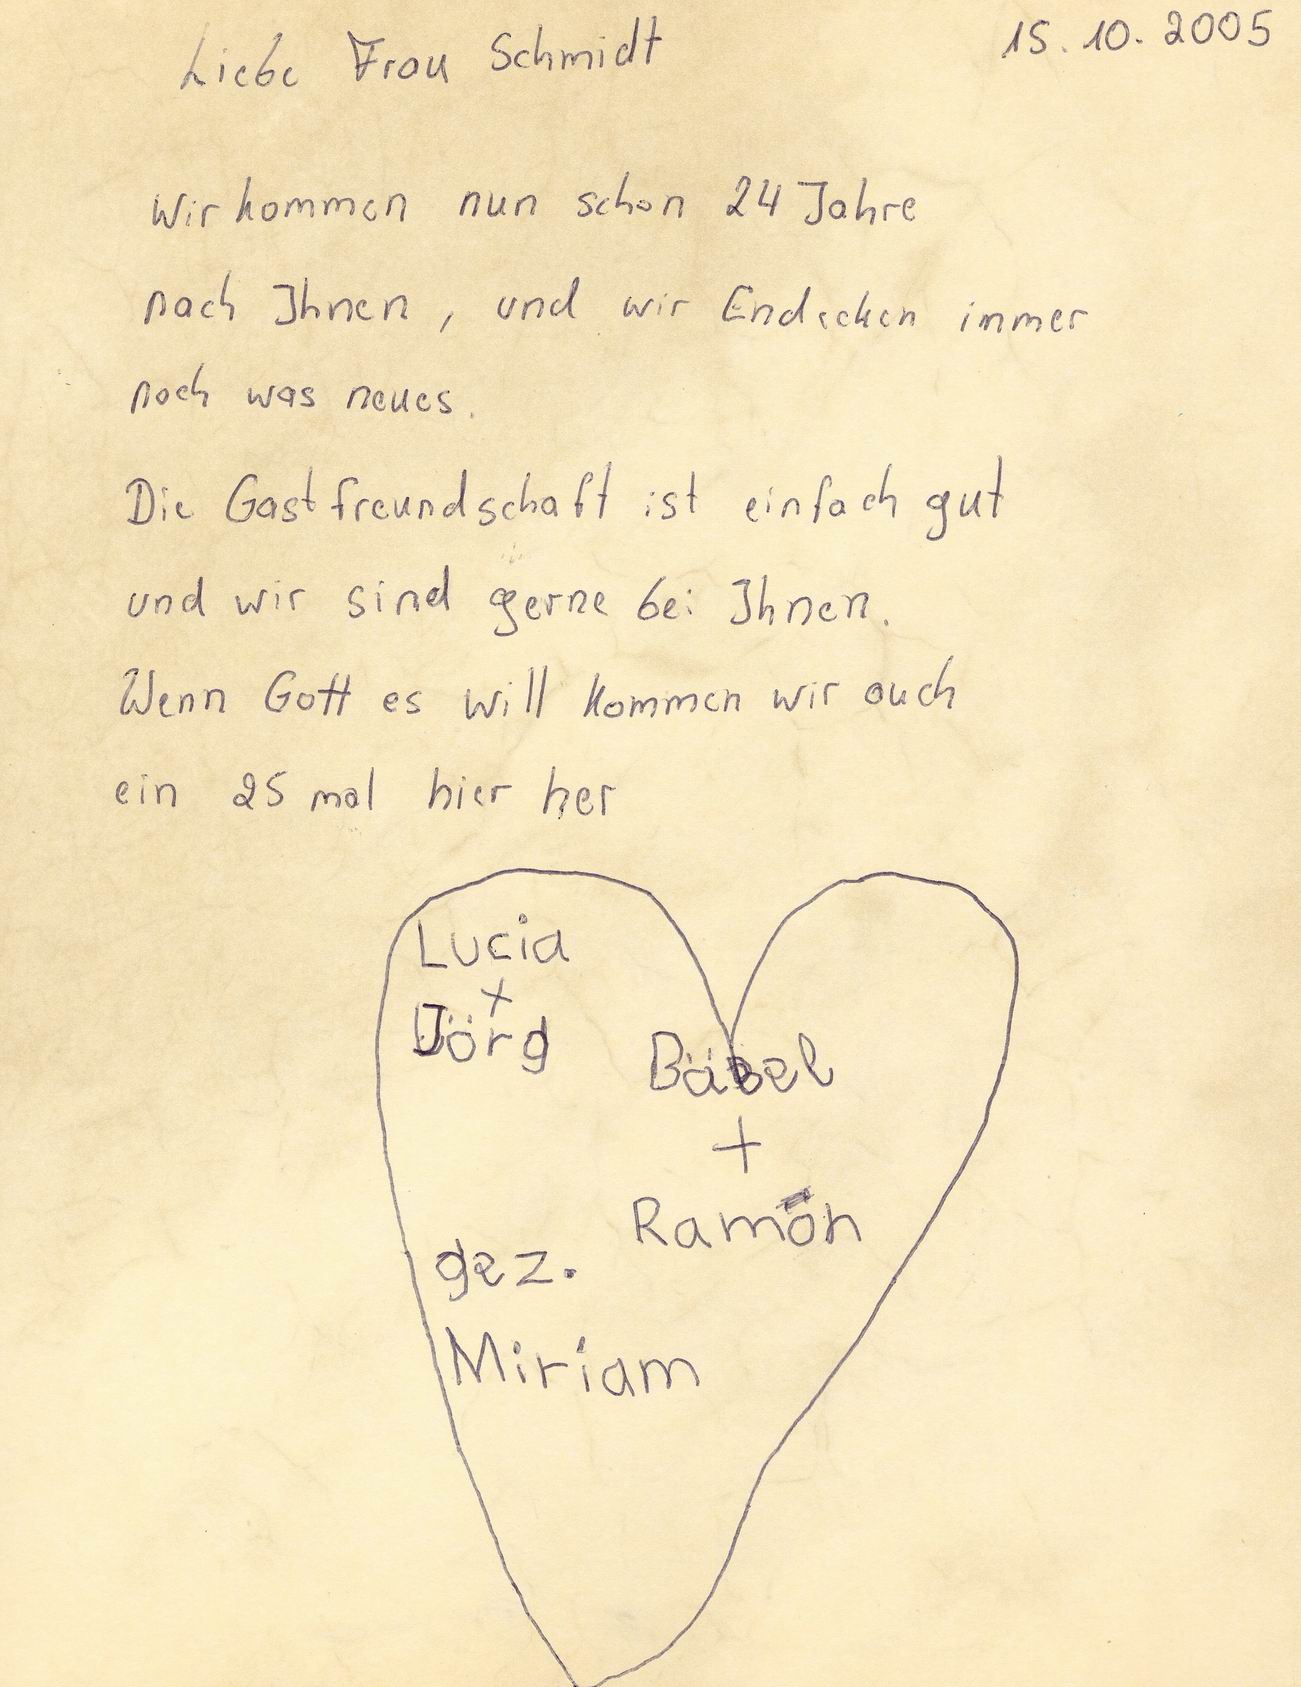 15.10.2005
Liebe Frau Schmidt
Wir kommen nun schon 24 Jahre
nach Ihnen, und wir Endecken immer
noch was neues.
Die Gastfreundschaft ist einfach gut
und wir sind gerne bei Ihnen.
Wenn Gott es will kommen wir auch
ein 25 mal hier her
Lucia
+
Jörg
Bäbel
+
Ramon
gez.
Miriam